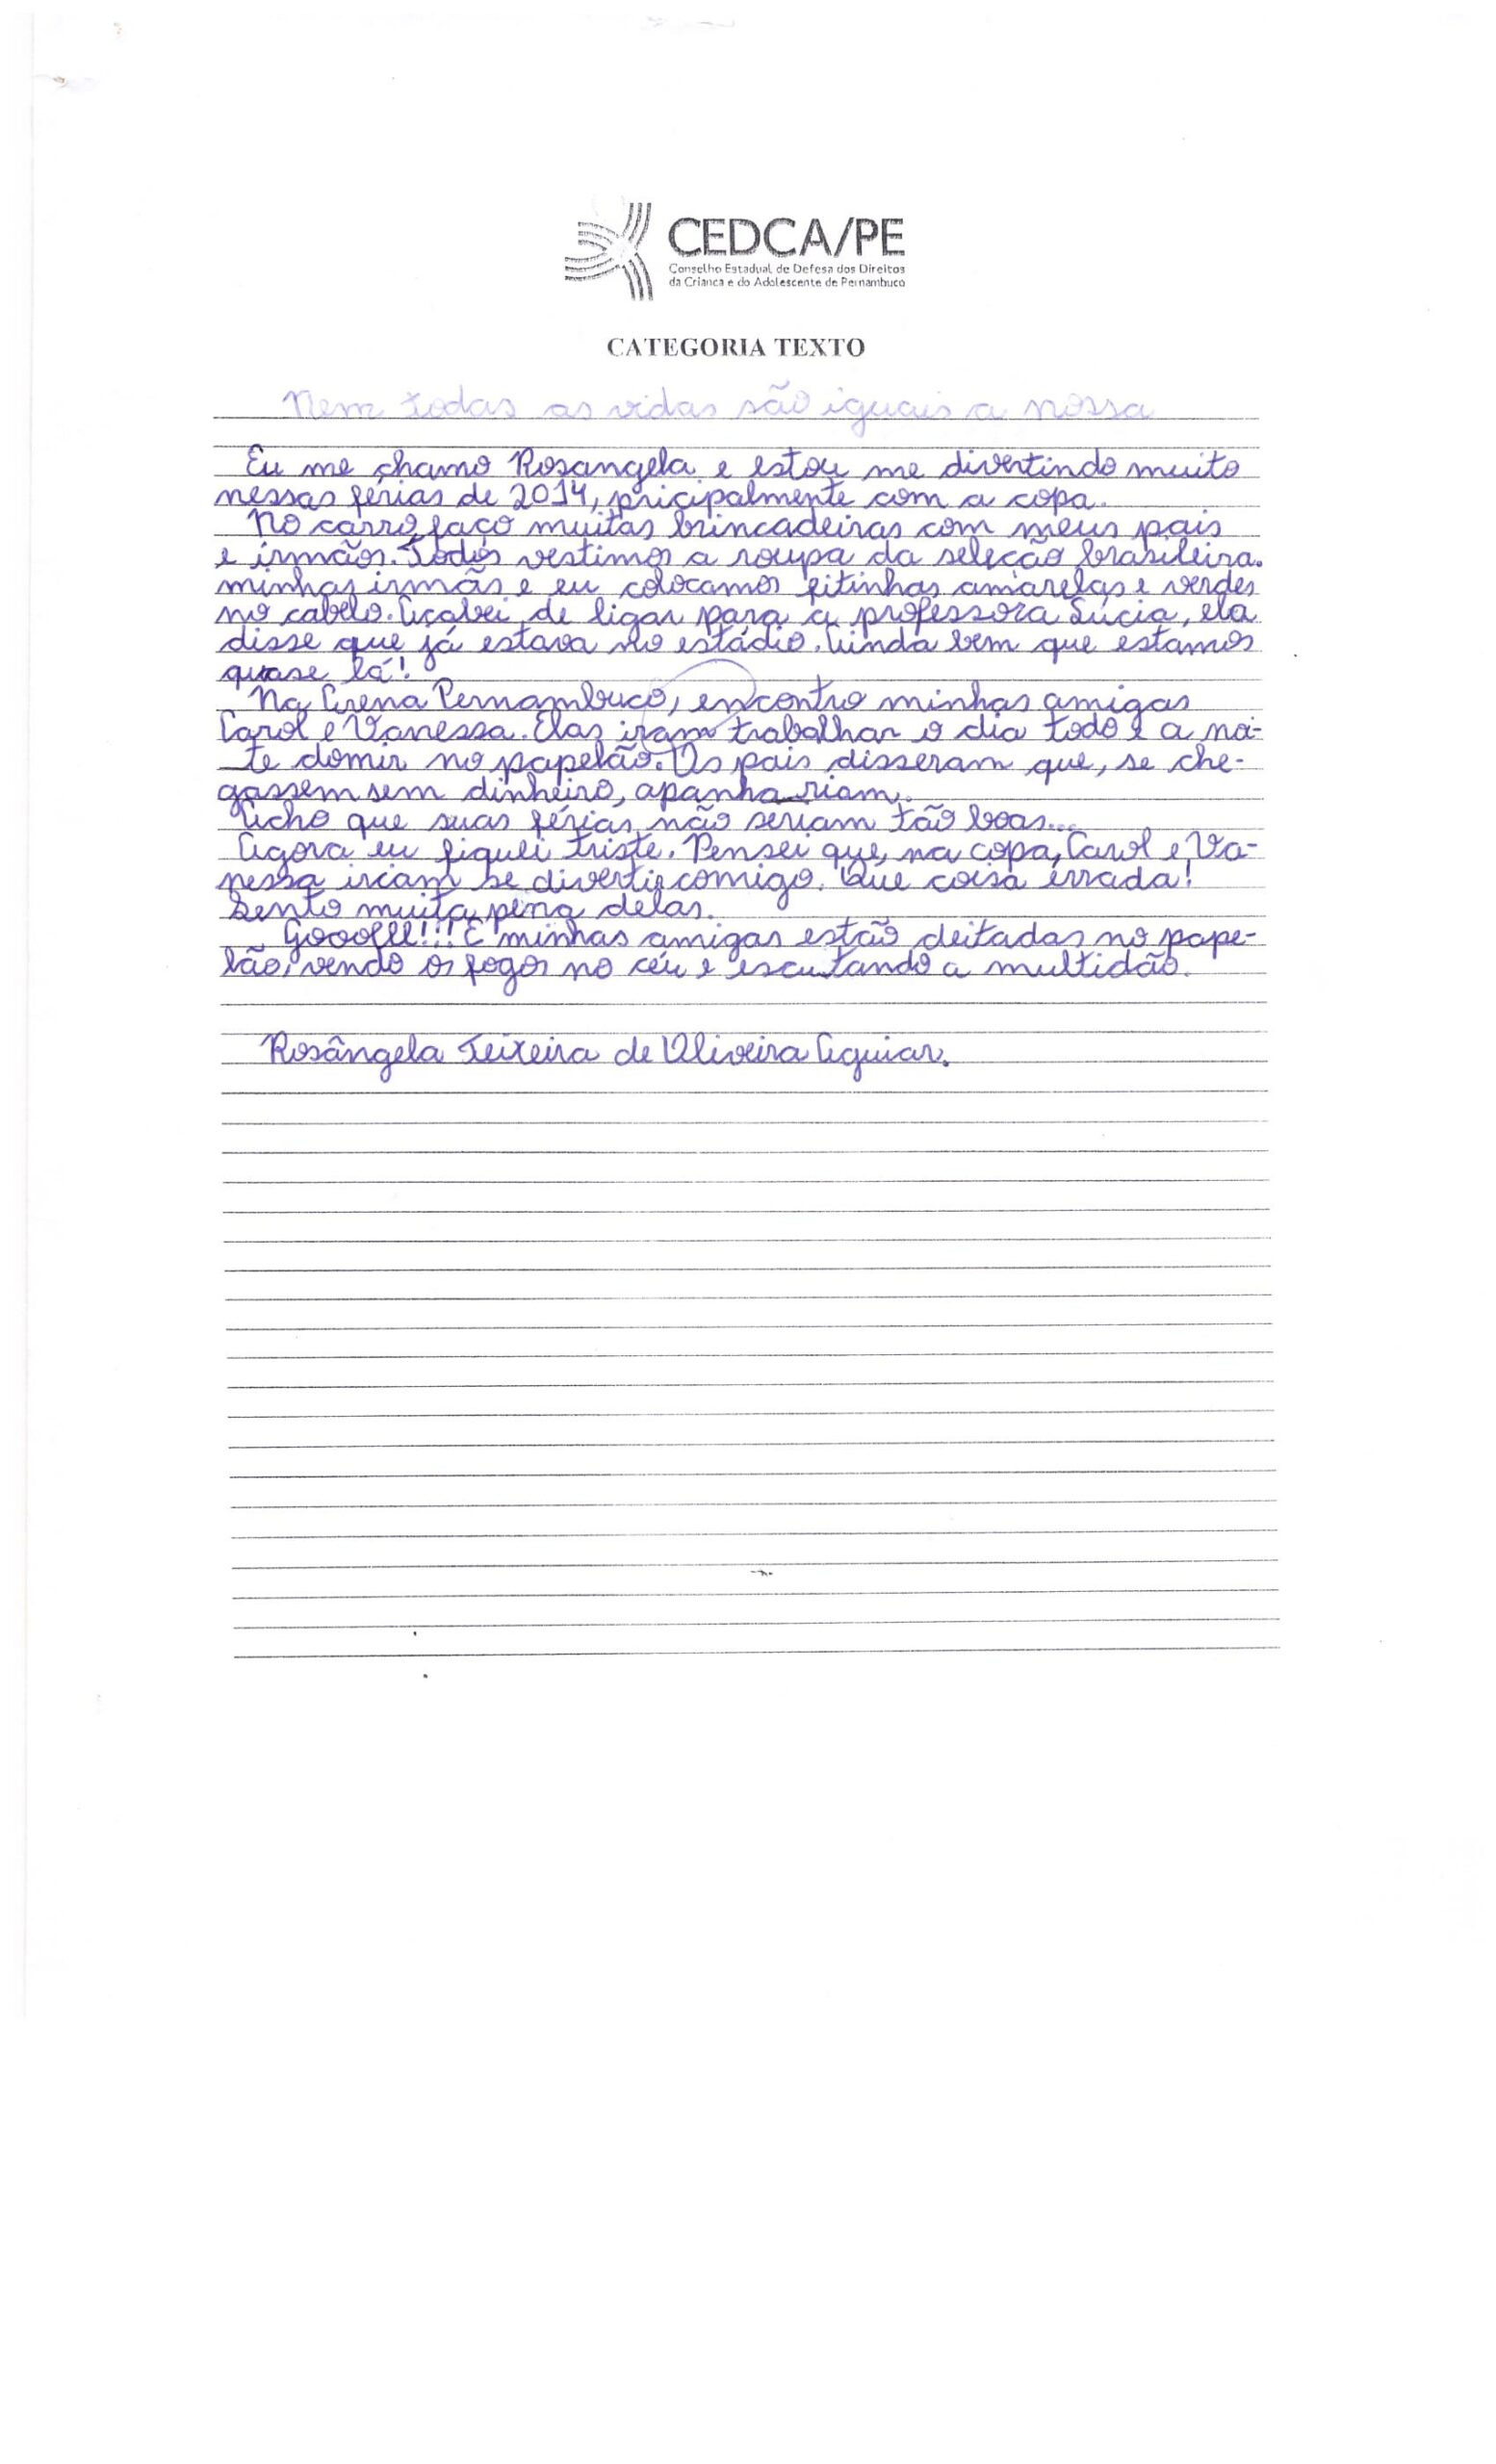 CEDCA/PE
Conselho Estadual de Defesa dos Direitos
da Criança e do Adolescente de Pernambuco
CATEGORIA TEXTO
Nem todas as vidas são iguais a nossa
Eu me chamo Rosangela e estou me divertindo muito
nessas férias de 2014, pricipalmente com a copa.
No carro faço muitas brincadeiras com meus pais
e irmãos. Todos vestimos a roupa da seleção brasileira.
minhas irmãs e eu colocamos fitinhas amarelas e verdes
no cabelo. Acabei de ligar para a professora Lúcia, ela
disse que já estava no estádio. Ainda bem que estamos
quase lá!
Na Arena Pernambuco, encontro minhas amigas
Carol e Vanessa. Elas iram trabalhar o dia todo e a noi-
te domir no papelão. Os pais disseram que, se che-
gassem sem dinheiro, apanhariam.
Acho que suas férias não seriam tão boas...
Agora eu fiquei triste. Pensei que, na copa, Carol e Va-
nessa iriam se divertir comigo. Que coisa errada!
Sento muita pena delas.
Gooolll!!! E minhas amigas estão deitadas no pape-
lão, vendo os fogos no céu e escutando a multidão.
Rosângela Teixeira de Oliveira Aguiar.